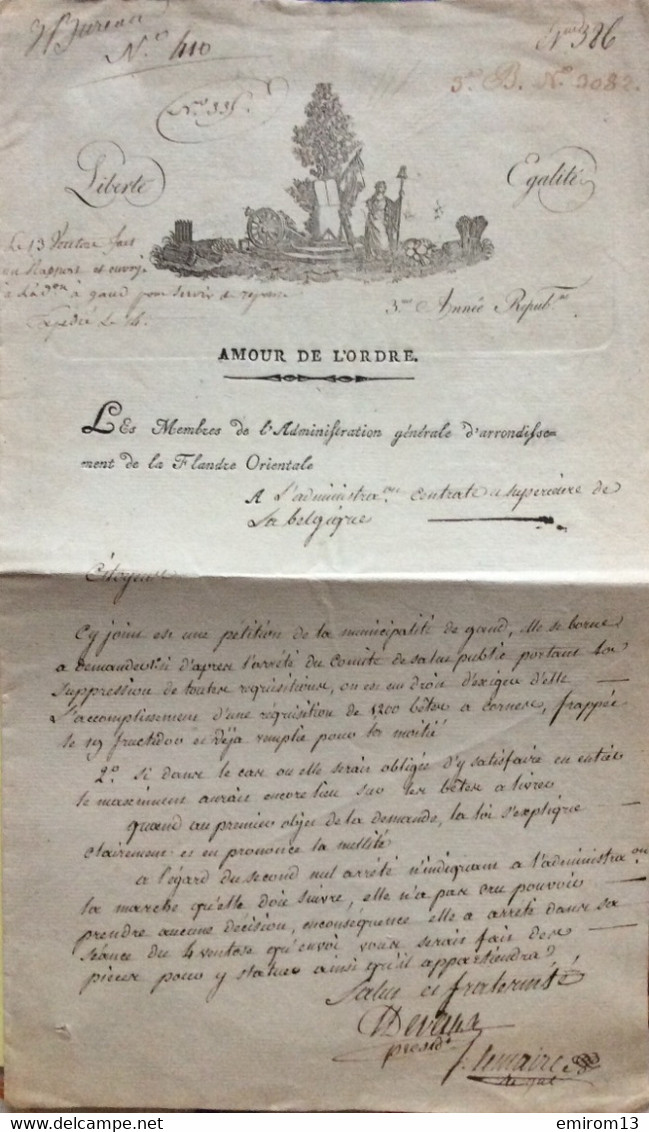 Bureau
N.o 410
N.o 386
3e. B. No 3082.
No 335
Liberté
Egalité
Le 13 Ventose fait
un Rapport et envoyé
à gand pour servir de reponse
Expedié le 14.
3.me Année Republ.ne
AMOUR DE L'ORDRE.
LEs Membres de l'Administration générale d'arrondisse-
ment de la Flandre Orientale
A L'administra.on centrale et superieure de
La belgique
Citoyens
Cy joint est une pétition de la municipalité de gand, elle se borne
a demander si d'apres l'arrété du Comité de salut public portant la
suppression de toutes requisitions, on est en droit d'exiger d'elle
L'accomplissement d'une réquisition de 1200 bêtes a cornes, frappée
le 19 fructidor et déja remplie pour la moitié
2.o si dans le cas ou elle serait obligée d'y satisfaire en entier
le maximum aurait encore lieu sur les bêtes a livrer
quand au premier objet de la demande, la loi s'explique
clairement et en prononce la nullité
a l'égard du second nul arrété n'indiquant a l'administra.on
la marche qu'elle doit suivre, elle n'a pas cru pouvoir
prendre aucune décision, enconséquence elle a arrété dans sa
séance du 4 ventose qu'envoi vous serait fait des
pieces pour y statuer ainsi qu'il appartiendra
Salut et fraternité
Devaux
presid.t
J. lemaire
© emirom13
www.delcampe.net